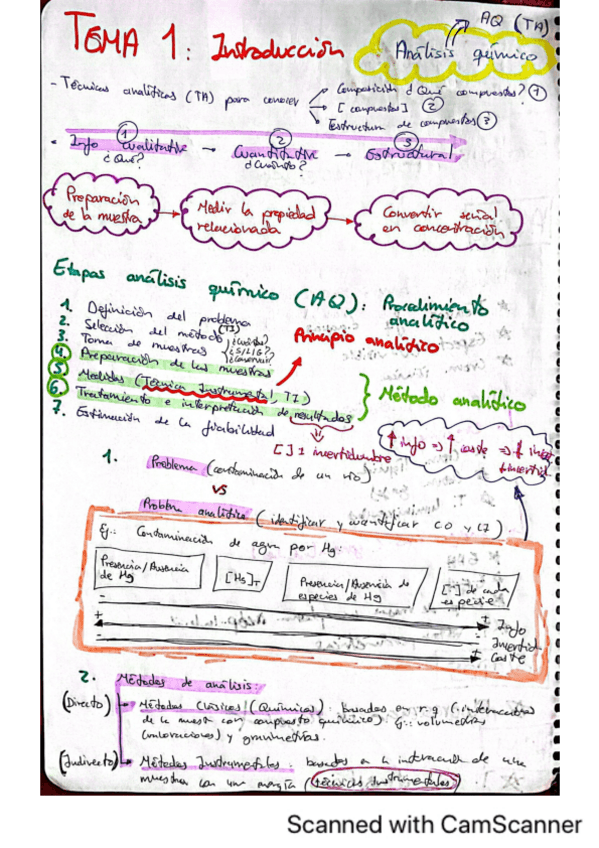 AQ (TA)
TEMA 1: Introducción
Análisis químico
- Técnicas analíticas (TA) para conocer
Composición ¿Qué compuestos? 1
[compuestos] 2
Estructura de compuestos 3
1 2 3
Info cualitativa → Cuantitativa → Estructural
¿Qué? ¿Cuánto?
Preparación de la muestra → Medir la propiedad relacionada → Convertir señal en concentración
Etapas análisis químico (AQ): Procedimiento analítico
1. Definición del problema
2. Selección del método (TI)
3. Toma de muestras
4. Preparación de las muestras
5. Medidas (Técnica Instrumental, TI)
6. Tratamiento e interpretación de resultados
7. Estimación de la fiabilidad
Principio analítico
Método analítico
[ ] ± incertidumbre
↑ info ⇒ ↑ coste ⇒
1. Problema (contaminación de un río)
VS
Problema analítico (identificar y cuantificar
Ej: Contaminación de agua por Hg
Presencia/Ausencia de Hg
[Hg]T
Presencia/Ausencia de especies de Hg
[ ] de cada especie
- + Info
+ - Incertid.
- + Coste
2. Métodos de análisis:
(Directo) Métodos Clásicos (Químicos): basados en r.q (interacción
de la muestra con compuesto químico). Ej: volumetrías
(valoraciones) y gravimetrías.
(Indirecto) Métodos Instrumentales: basados en la interacción de una
muestra con una energía (técnicas instrumentales)
Scanned with CamScanner